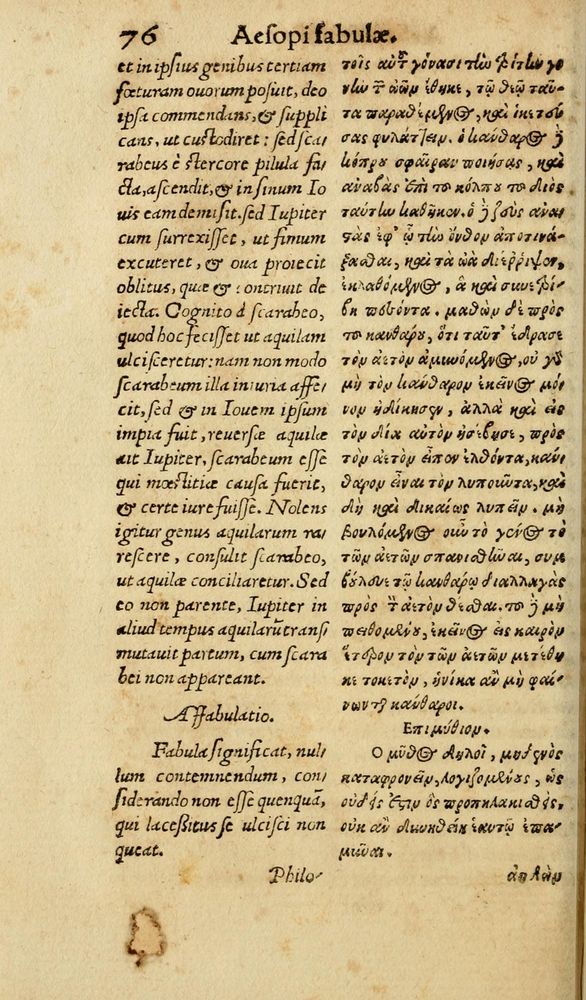 76 Aesopi fabulæ.
et in ipsius genibus tertiam
fœturam ouorum posuit, deo
ipsa commendans, & suppli
cans, ut custodiret: sed sca
rabeus è stercore pilula fa
cta, ascendit, & in sinum Io
uis eam demisit. sed Iupiter
cum surrexisset, ut fimum
excuteret, & oua proiecit
oblitus, quæ & contriuit de
iecta. Cognito à scarabeo,
quod hoc fecisset ut aquilam
ulcisceretur: nam non modo
scarabeum illa iniuria affe
cit, sed & in Iouem ipsum
impia fuit, reuersæ aquilæ
ait Iupiter, scarabeum esse
qui mœstitiæ causa fuerit,
& certe iure fuisse. Nolens
igitur genus aquilarum ra
rescere, consulit scarabeo,
ut aquilæ conciliaretur. Sed
eo non parente, Iupiter in
aliud tempus aquilarū transf
mutauit partum, cum scara
bei non appareant.
Affabulatio.
Fabula significat, nul
lum contemnendum, con
siderando non esse quenquā,
qui lacessitus se ulcisci non
queat.
Philo-
τοῖς αὑτοῦ γόνασι τὴν τρίτην γο
νὴν τῶν ὠῶν ἔθηκε, τῷ θεῷ ταῦ-
τα παραθέμενος, καὶ ἱκετεύ
σας φυλάττειν. ὁ κάνθαρος δὲ
κόπρου σφαῖραν ποιήσας, καὶ
ἀναβὰς ἐπὶ τοῦ κόλπου τοῦ διὸς
ταύτην καθῆκεν. ὁ δὲ ζεὺς ἀνα
στὰς ἐφ' ᾧ τὴν ὄνθον ἀποτινά-
ξασθαι, καὶ τὰ ὠὰ διέρριψεν,
ἐκλαθόμενος, ἃ καὶ συνετρί-
βη πεσόντα. μαθὼν δὲ πρὸς
τοῦ κανθάρου, ὅτι ταῦτ' ἔδρασε
τὸν ἀετὸν ἀμυνόμενος, οὐ γὰρ
δὴ τὸν κάνθαρον ἐκεῖνος μό-
νον ἠδίκησεν, ἀλλὰ καὶ εἰς
τὸν δία αὐτὸν ἠσέβησε, πρὸς
τὸν ἀετὸν εἶπεν ἐλθόντα, κάν-
θαρον εἶναι τὸν λυποῦντα, καὶ
δὴ καὶ δικαίως λυπεῖν. μὴ
βουλόμενος οὖν τὸ γένος τὸ
τῶν ἀετῶν σπανισθῆναι, συμ
βούλευε τῷ κανθάρῳ διαλλαγὰς
πρὸς τὸν ἀετὸν θέσθαι. τοῦ δὲ μὴ
πειθομένου, ἐκεῖνος εἰς καιρὸν
ἕτερον τὸν τῶν ἀετῶν μετέθη-
κε τοκετὸν, ἡνίκα ἂν μὴ φαί-
νωνται κάνθαροι.
Επιμύθιον.
Ο μῦθος δηλοῖ, μηδενὸς
καταφρονεῖν, λογιζομένους, ὡς
οὐδείς ἐστιν ὃς προπηλακισθεὶς,
οὐκ ἂν δυνηθείη ἑαυτῷ ἐπα-
μῦναι.